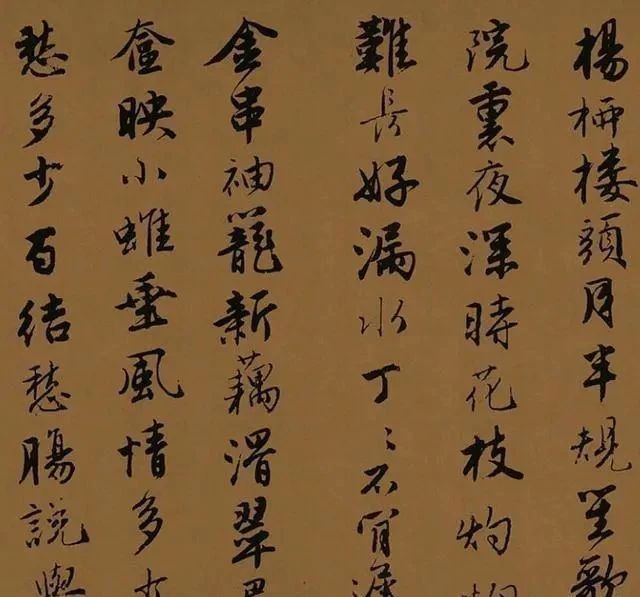 楊柳樓頭月半規笙歌
院裏夜深時花枝灼
難長好漏水丁〻不肎
金串袖籠新藕滑翠
奩映小垂風情多少
愁多少百結愁腸説